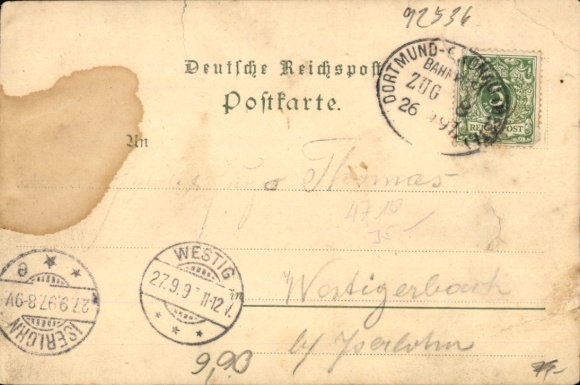 92536
Deutsche Reichspost
Postkarte.
DORTMUND-
BAHN
ZUG
26 9 97
REICHSPOST
An
Hugo Thomas
WESTIG
27.9.97 11-12 V.
ISERLOHN
27.9.97.8-9V
Westigerbach
b/ Iserlohn
9,90